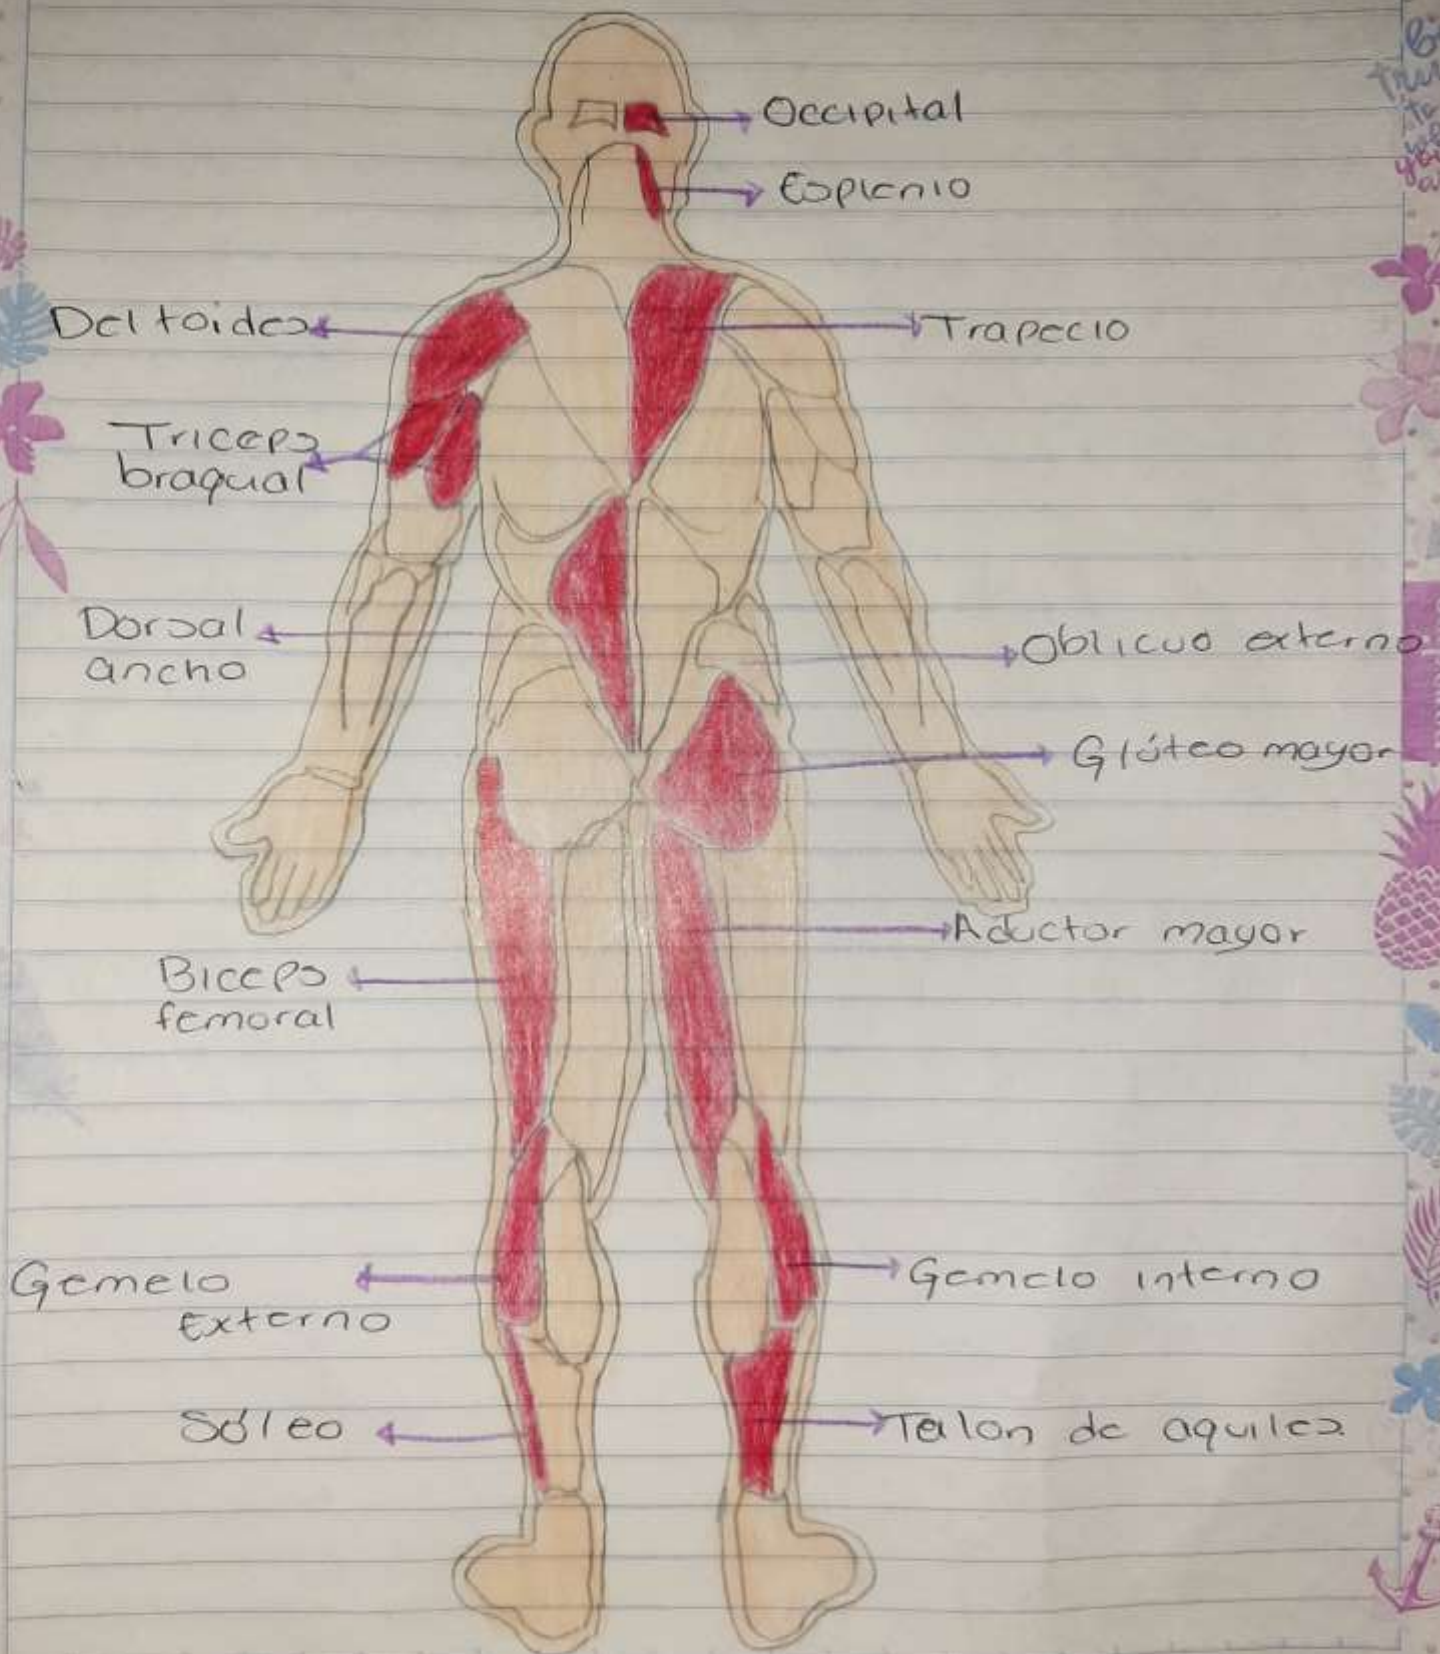 Occipital
Esplenio
Deltoides
Trapecio
Triceps
braquial
Dorsal
ancho
Oblicuo externo
Glúteo mayor
Aductor mayor
Biceps
femoral
Gemelo
Externo
Gemelo interno
Sóleo
Talon de aquiles